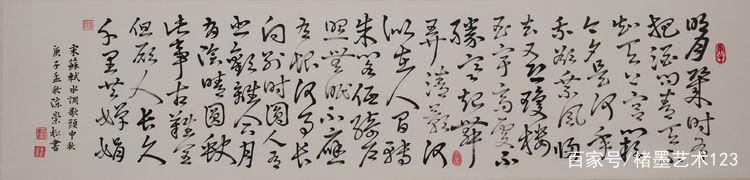 明月幾时有
把酒问青天不
知天上宫阙
今夕是何年
我欲乘风归
去又恐瓊楼
玉宇高处不
胜寒起舞
弄清影何
似在人间转
朱阁低绮户
照無眠不应
有恨何事长
向别时圆人有
悲歡離合月
有陰晴圆缺
此事古難全
但愿人长久
千里共婵娟
宋蘇軾水調歌頭中秋
庚子孟秋陈崇松書
百家号/楮墨艺术123